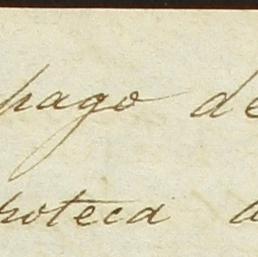 pago de
roteca a